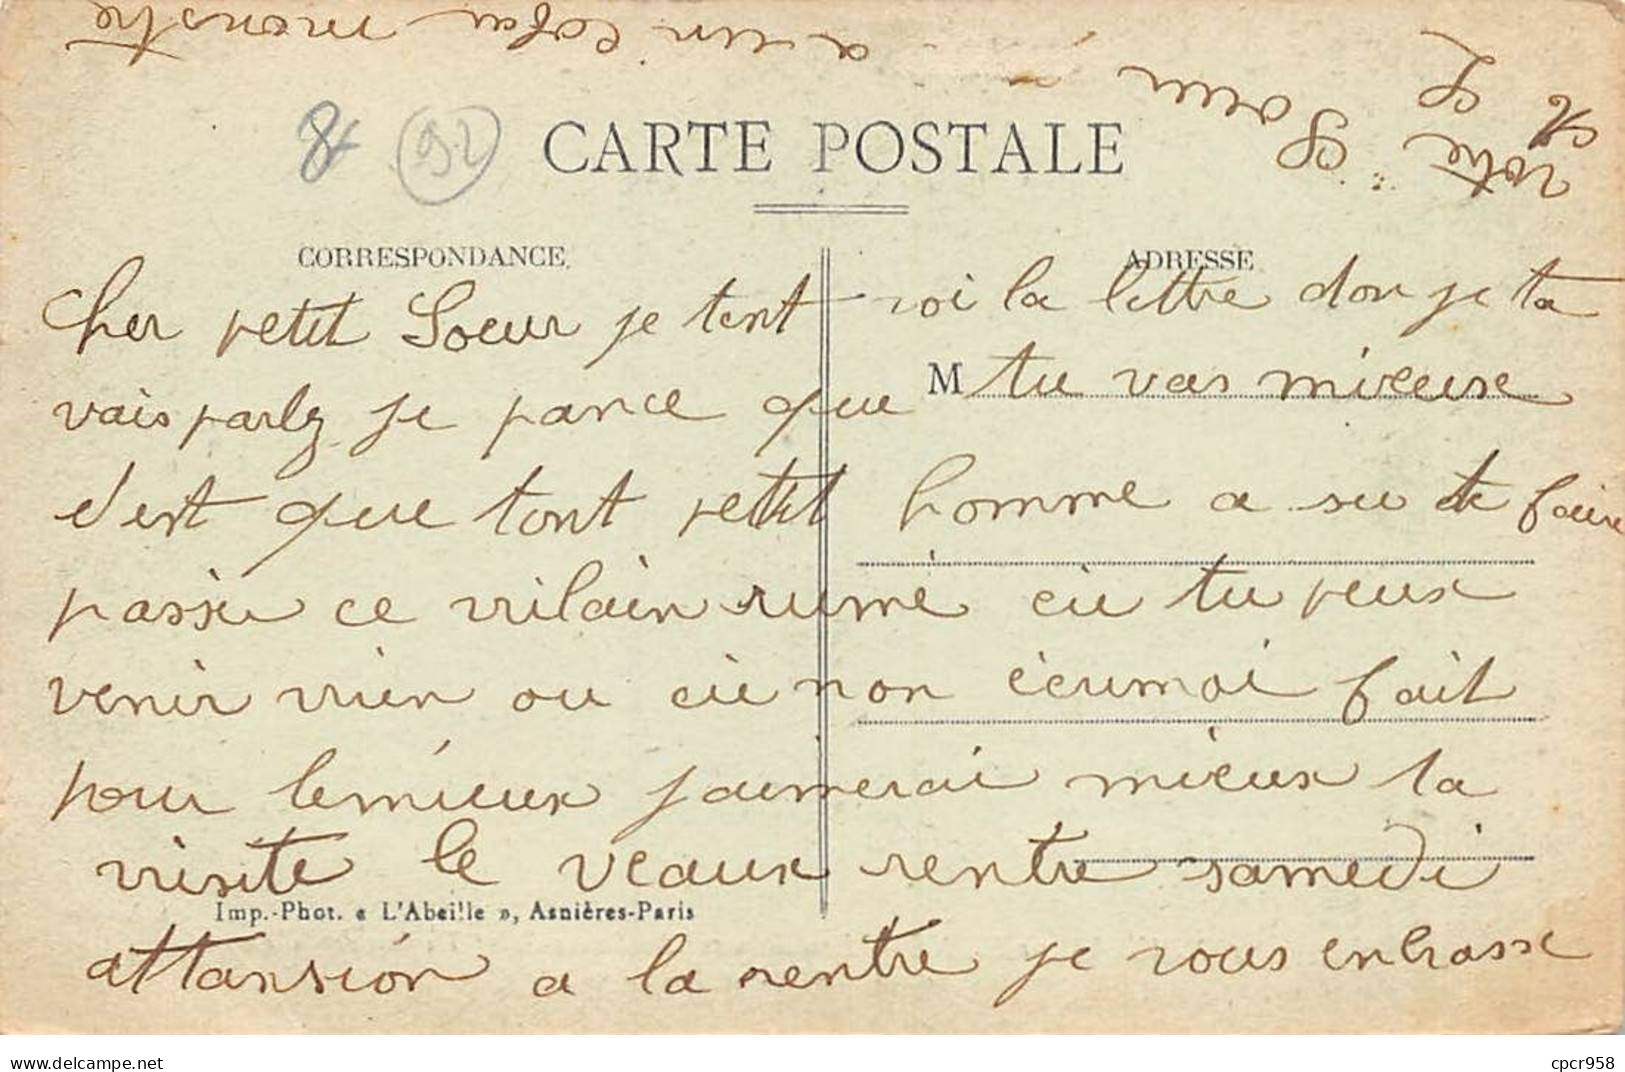 8
92
CARTE POSTALE
CORRESPONDANCE
ADRESSE
Cher petit Soeur je tent voi la lettre don je ta
vais parlez je pance que M tu vas mieuse
c'est que tont petit homme a su te faire
passeu ce vilain rume cie tu peux
venir vien ou cie non écumoi fait
pour lemieux jaimerai mieux ta
visite le veaux rentre samedi
Imp.-Phot. « L'Abeille », Asnières-Paris
attansion a la rentre je vous enbrasse
votre Soeur
a un cofre monstre
cpcr958